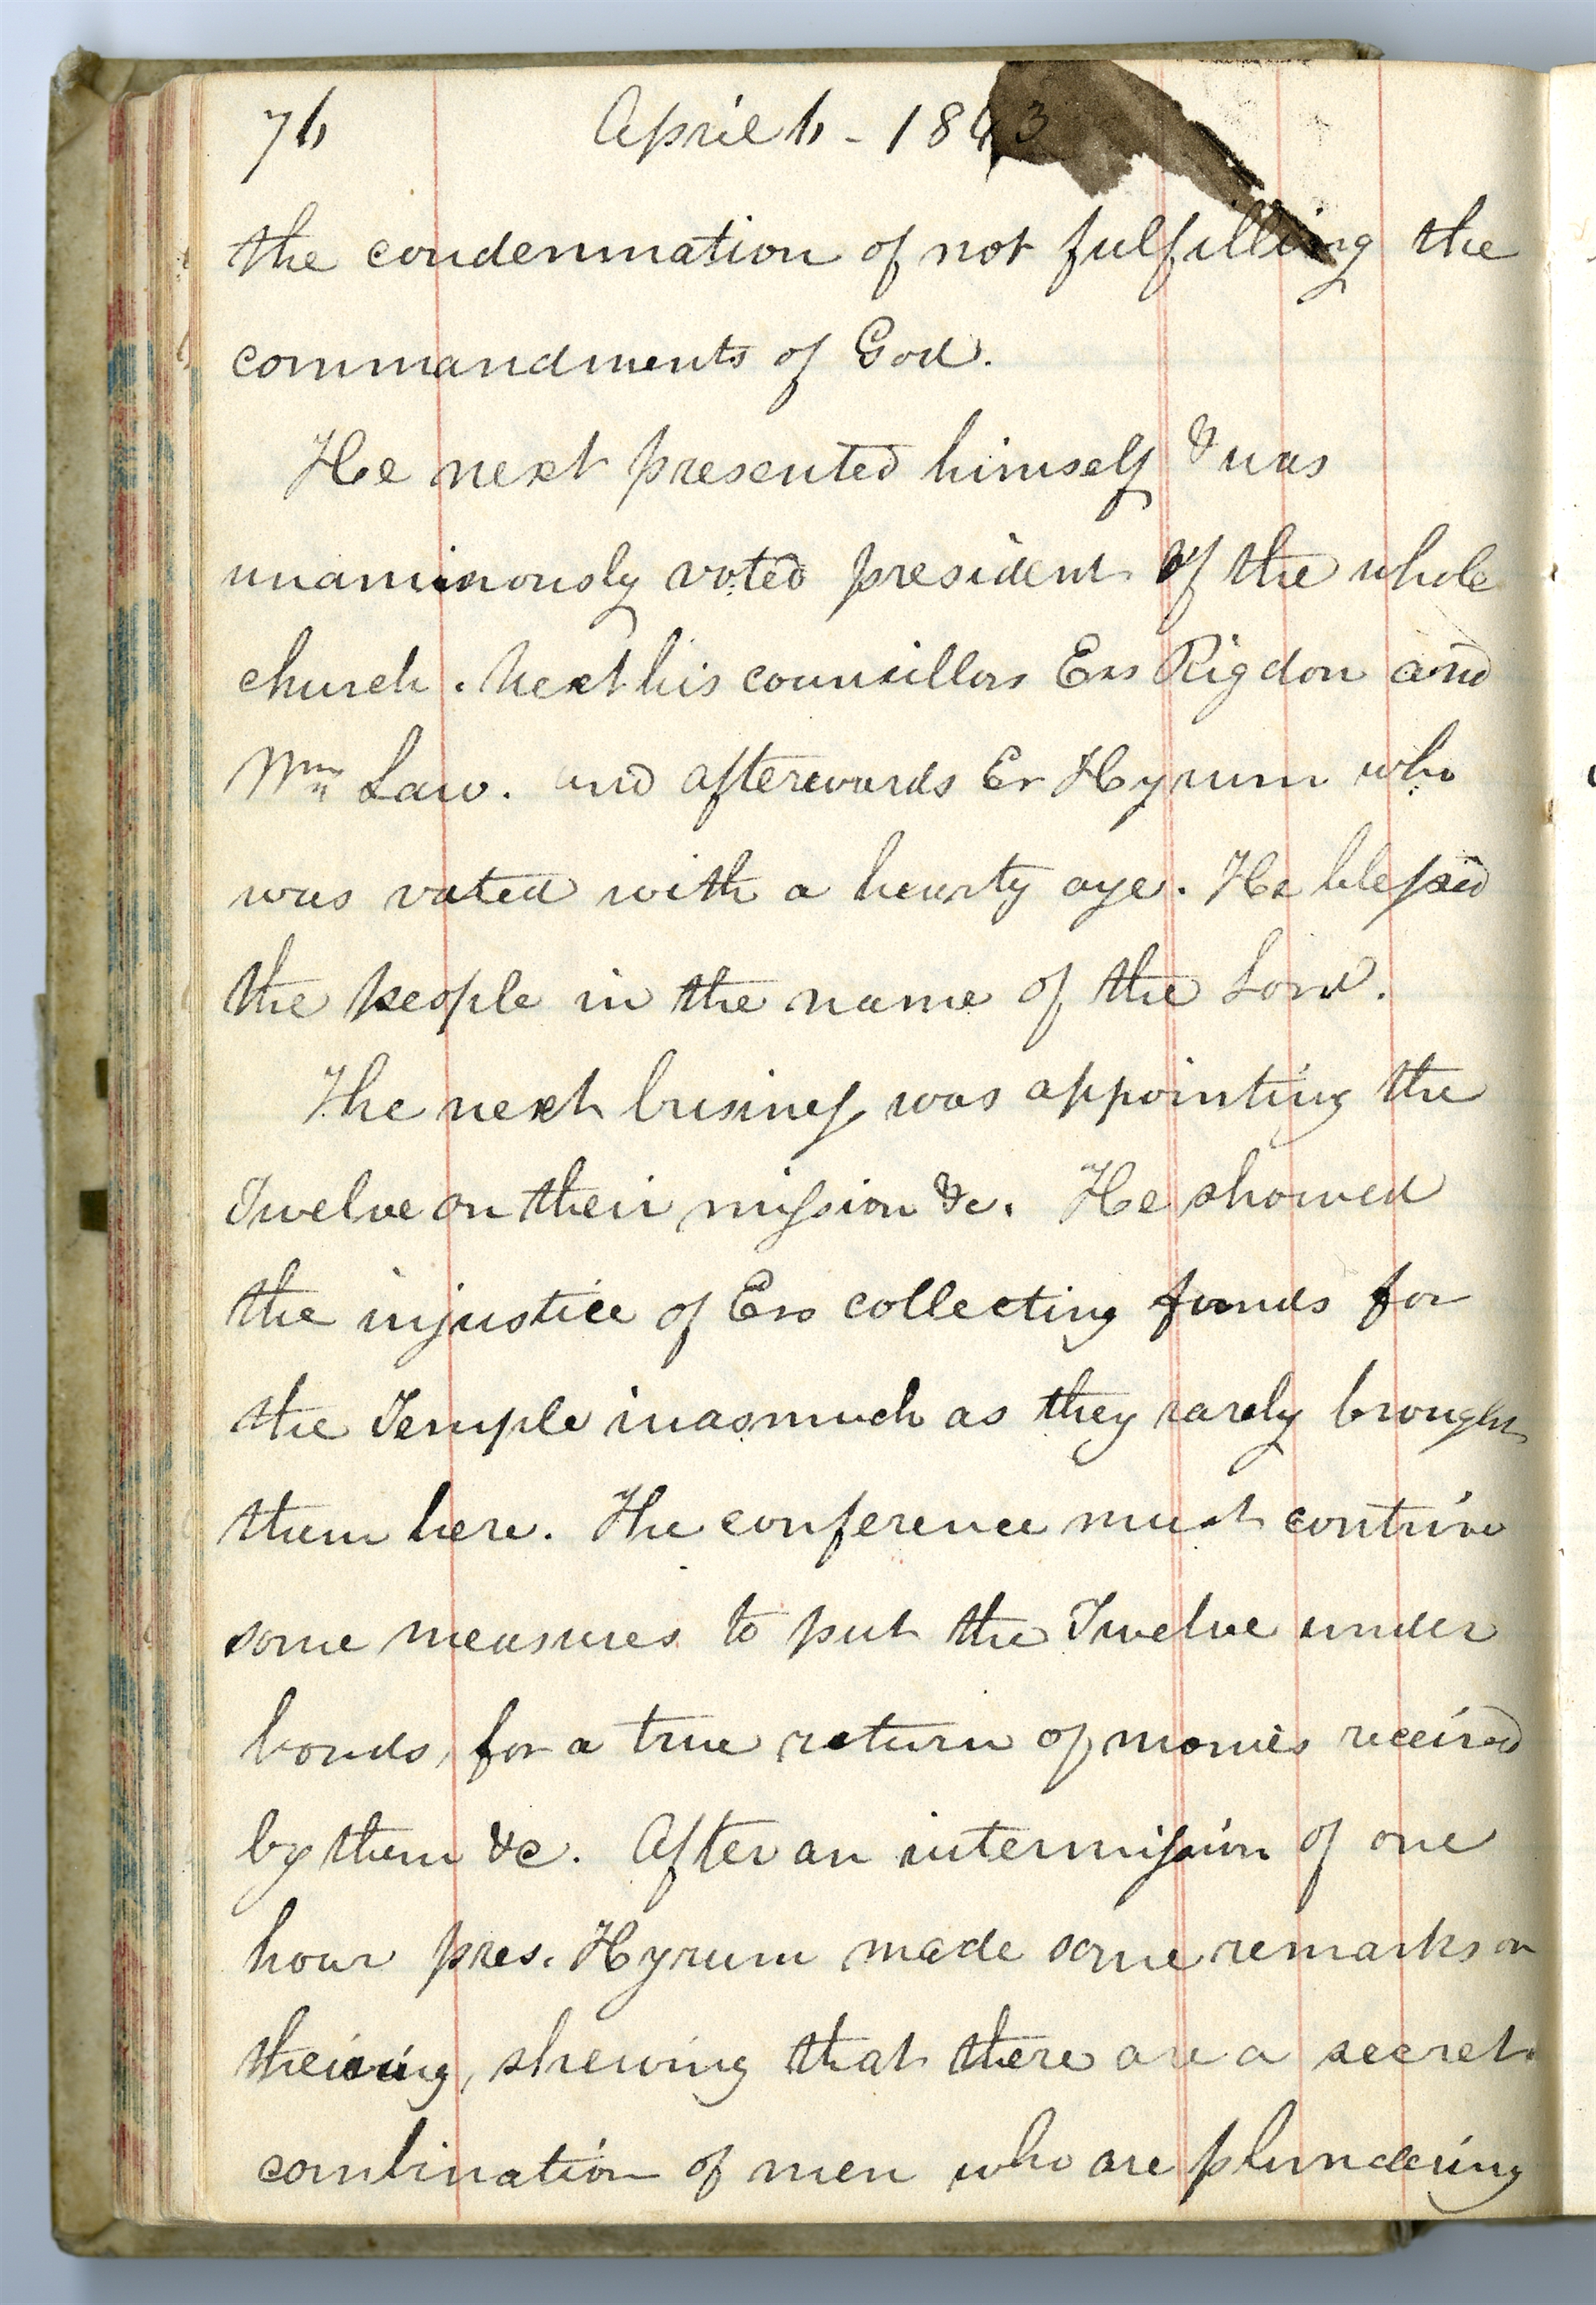 76 April 6 - 1843
the condemnation of not fulfilling the
commandments of God.
He next presented himself & was
unanimously voted president of the whole
church. Next his councillors Ers Rigdon and
Wm Law. and afterwards Er Hyrum who
was voted with a hearty aye. He blessed
the people in the name of the Lord.
The next business was appointing the
Twelve on their mission &c. He showed
the injustice of Ers collecting funds for
the Temple inasmuch as they rarely brought
them here. The conference must contrive
some measures to put the Twelve under
bonds, for a true return of monies received
by them &c. After an intermission of one
hour pres. Hyrum made some remarks on
theiving, shewing that there are a secret
combination of men who are plundering